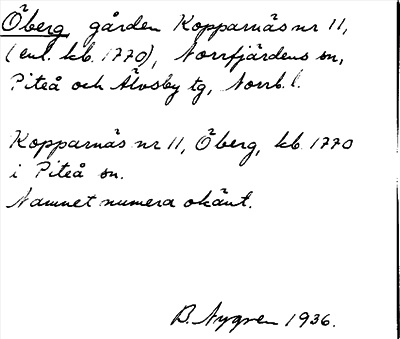 Öberg, gården Kopparnäs nr 11,
(enl. kb. 1770), Norrfjärdens sn,
Piteå och Älvsby tg, Norrb. l.
Kopparnäs nr 11, Öberg, kb. 1770
i Piteå sn.
Namnet numera okänt.
B. Nygren 1936.